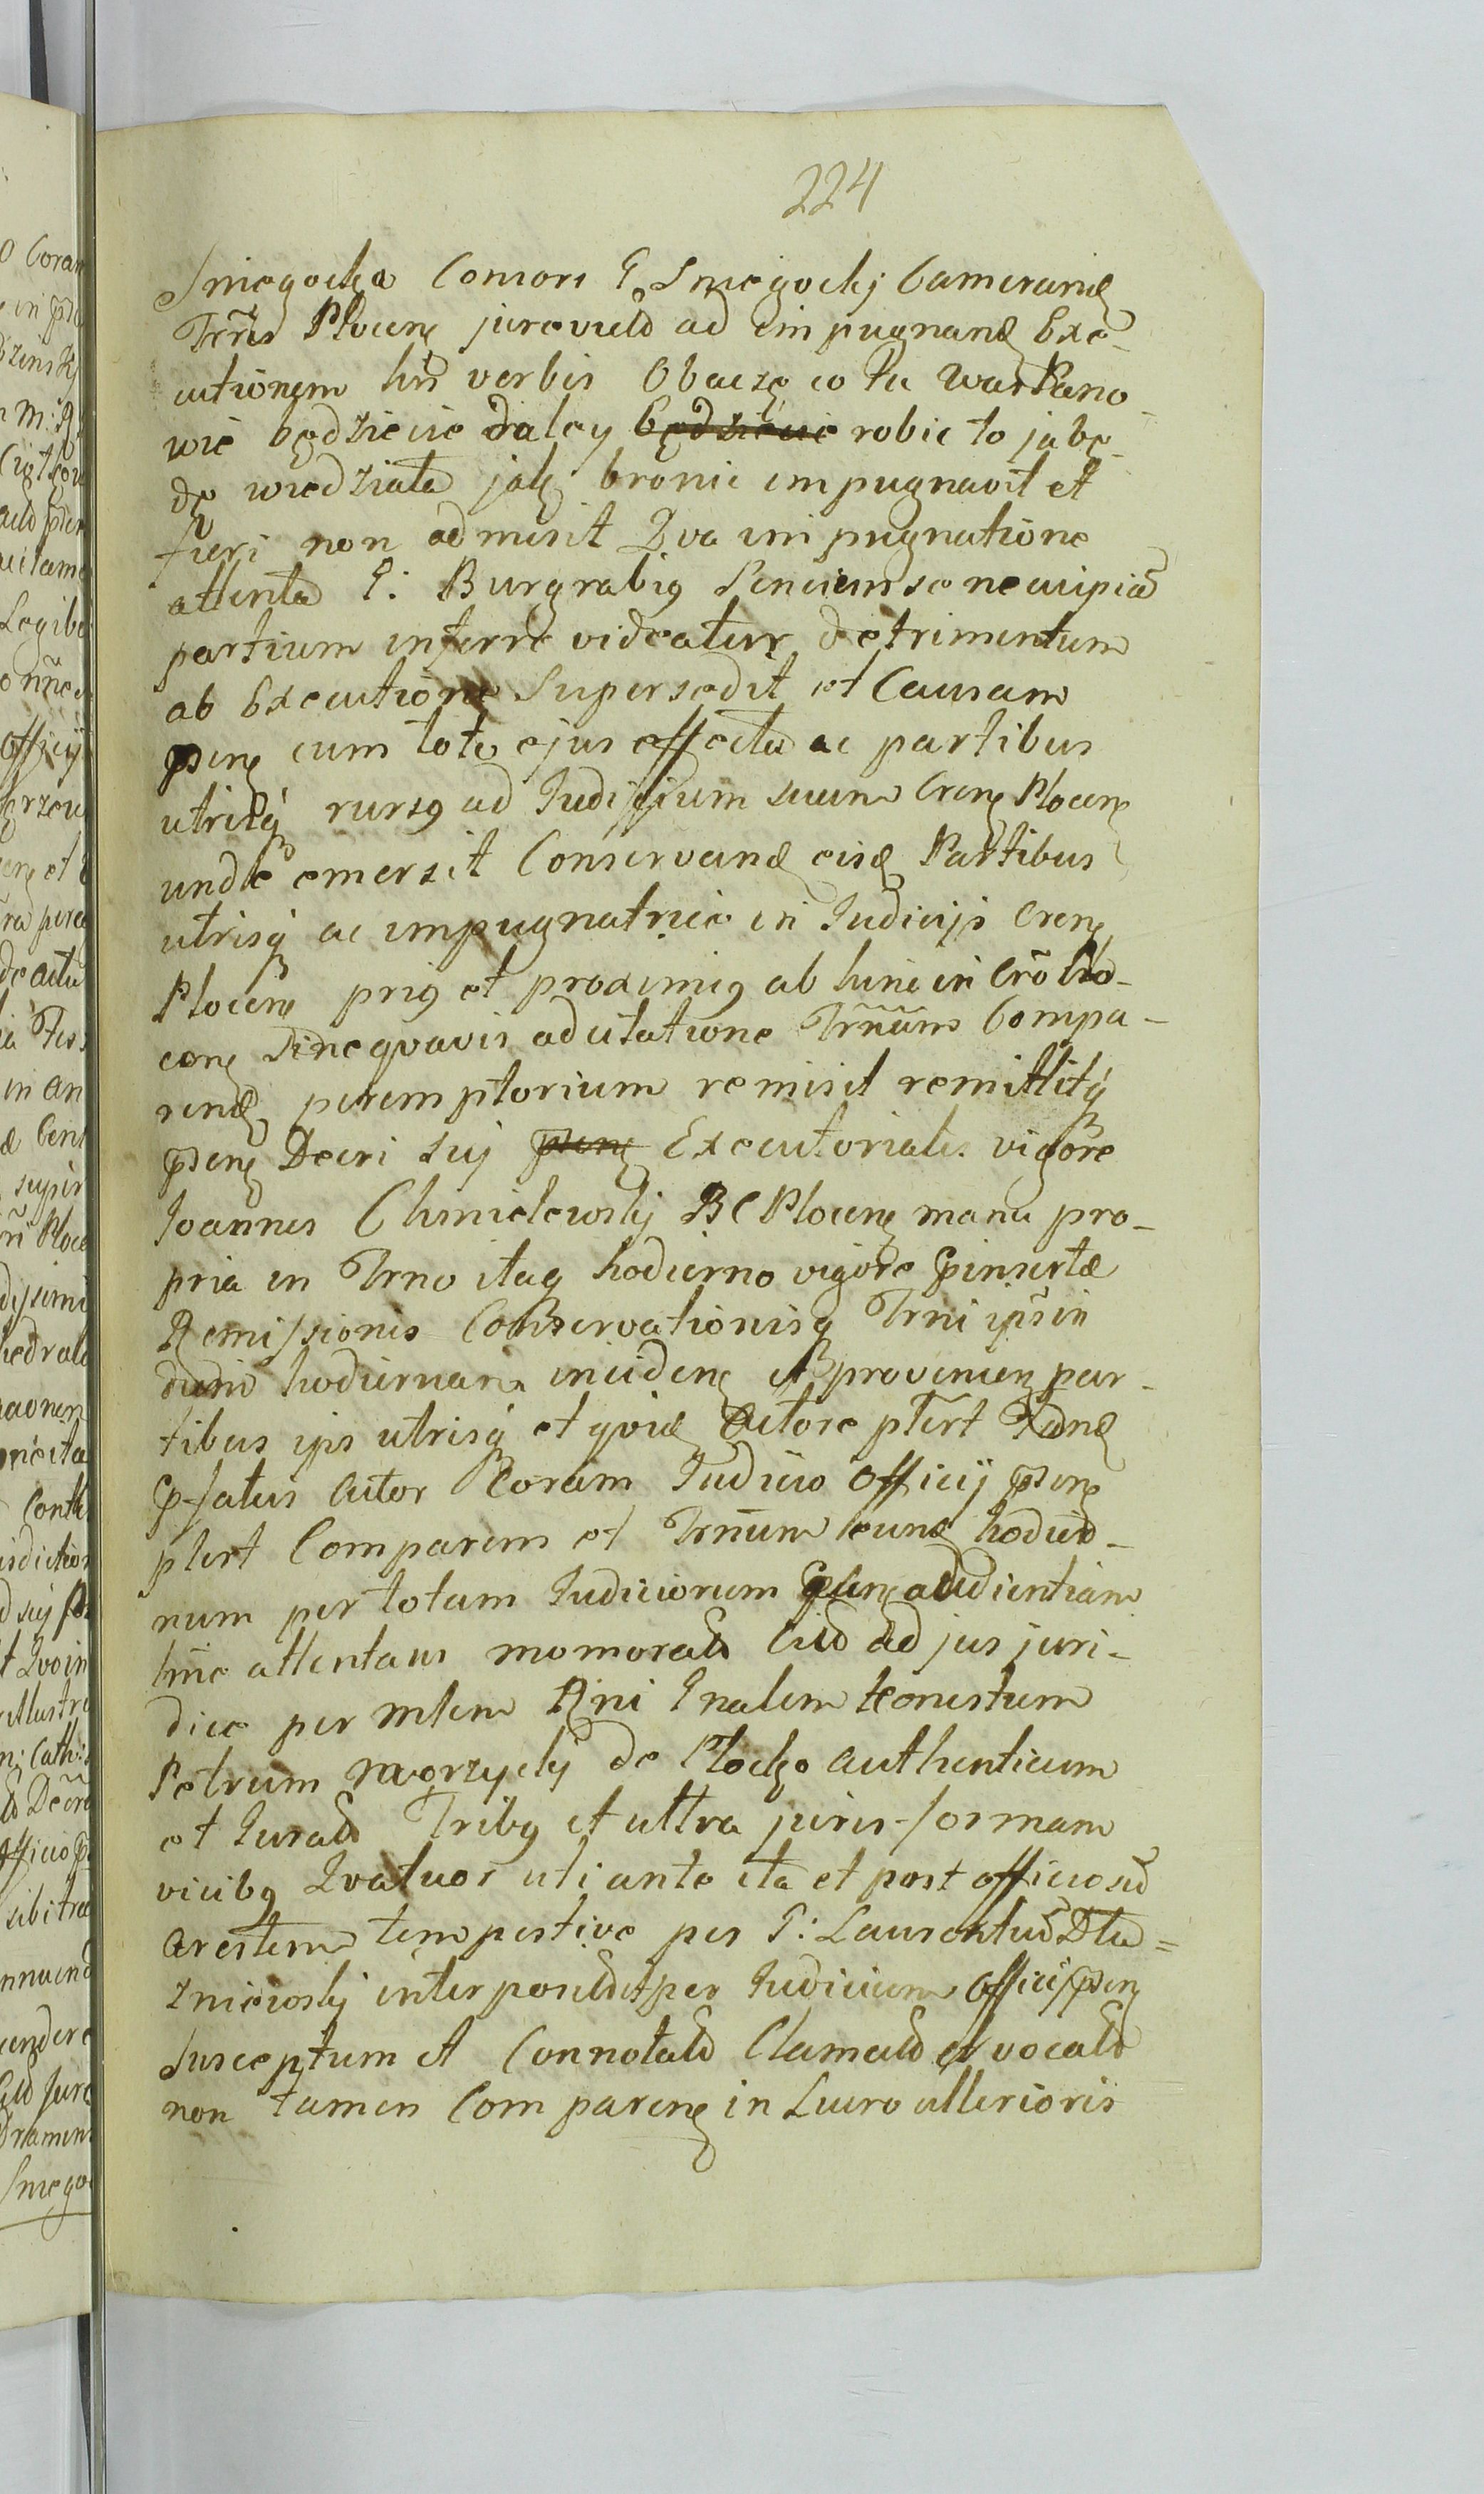 224
Smogocka Consors G. Smogocky Camerarię
Trris Plocen jurevictó ad impugnand Exe-
cutionem his verbis Obaczę co tu waśPano
wie będziecie daley będziecie robic to ja bę-
dę wiedziała jak bronic impugnavit et
fieri non admisit Qva impugnatione
attenta G: Burgrabiq Sencien se ne cuipiā
partium inferre videatur detrimentum
ab Executione Supersedit et Causam
psen cum toto ejus effectu ac partibus
utrisq rursq ad Judicium suum Cren Plocen
unde emersit Conservand eisd Partibus
utrisq ac impugnatrice in Judicijs Cren
Plocen priq et proximiq ab hinc in Crō
cen sine qvavis adcitatione Trnum Compa-
rend peremptorium remisit remittitq
psen Decri sui psen Executorialis vigore
Joannes Chmielewsky BC Plocen manu pro-
pria in Trno itaq hodierno vigore pinsertæ
Remissionis Conservationisq Trni ipsin
diem hodiernam inciden et provenien par-
tibus ips utrisq et qvid Actore ptert
pfatus Actor Coram Judicio Officij psen
ptert Comparens et Trnum eund hodier-
num per totam Judiciorum psen audientiam
hnc attentans memorató Citó ad jus juri-
dice per mtem Rni Gnalem
Petrum de Plocko authenticum
et Jurató Tribq et ultra juris formam
vicibq Qvatuor uti ante ita et post officiosū
arestem tempestive per G: Laurentiū Dłu=
zniewsky interpositó et per Judicium Officij psen
susceptum et Connotató Clamató et vocató
non tamen Comparen in Lucro ulterioris